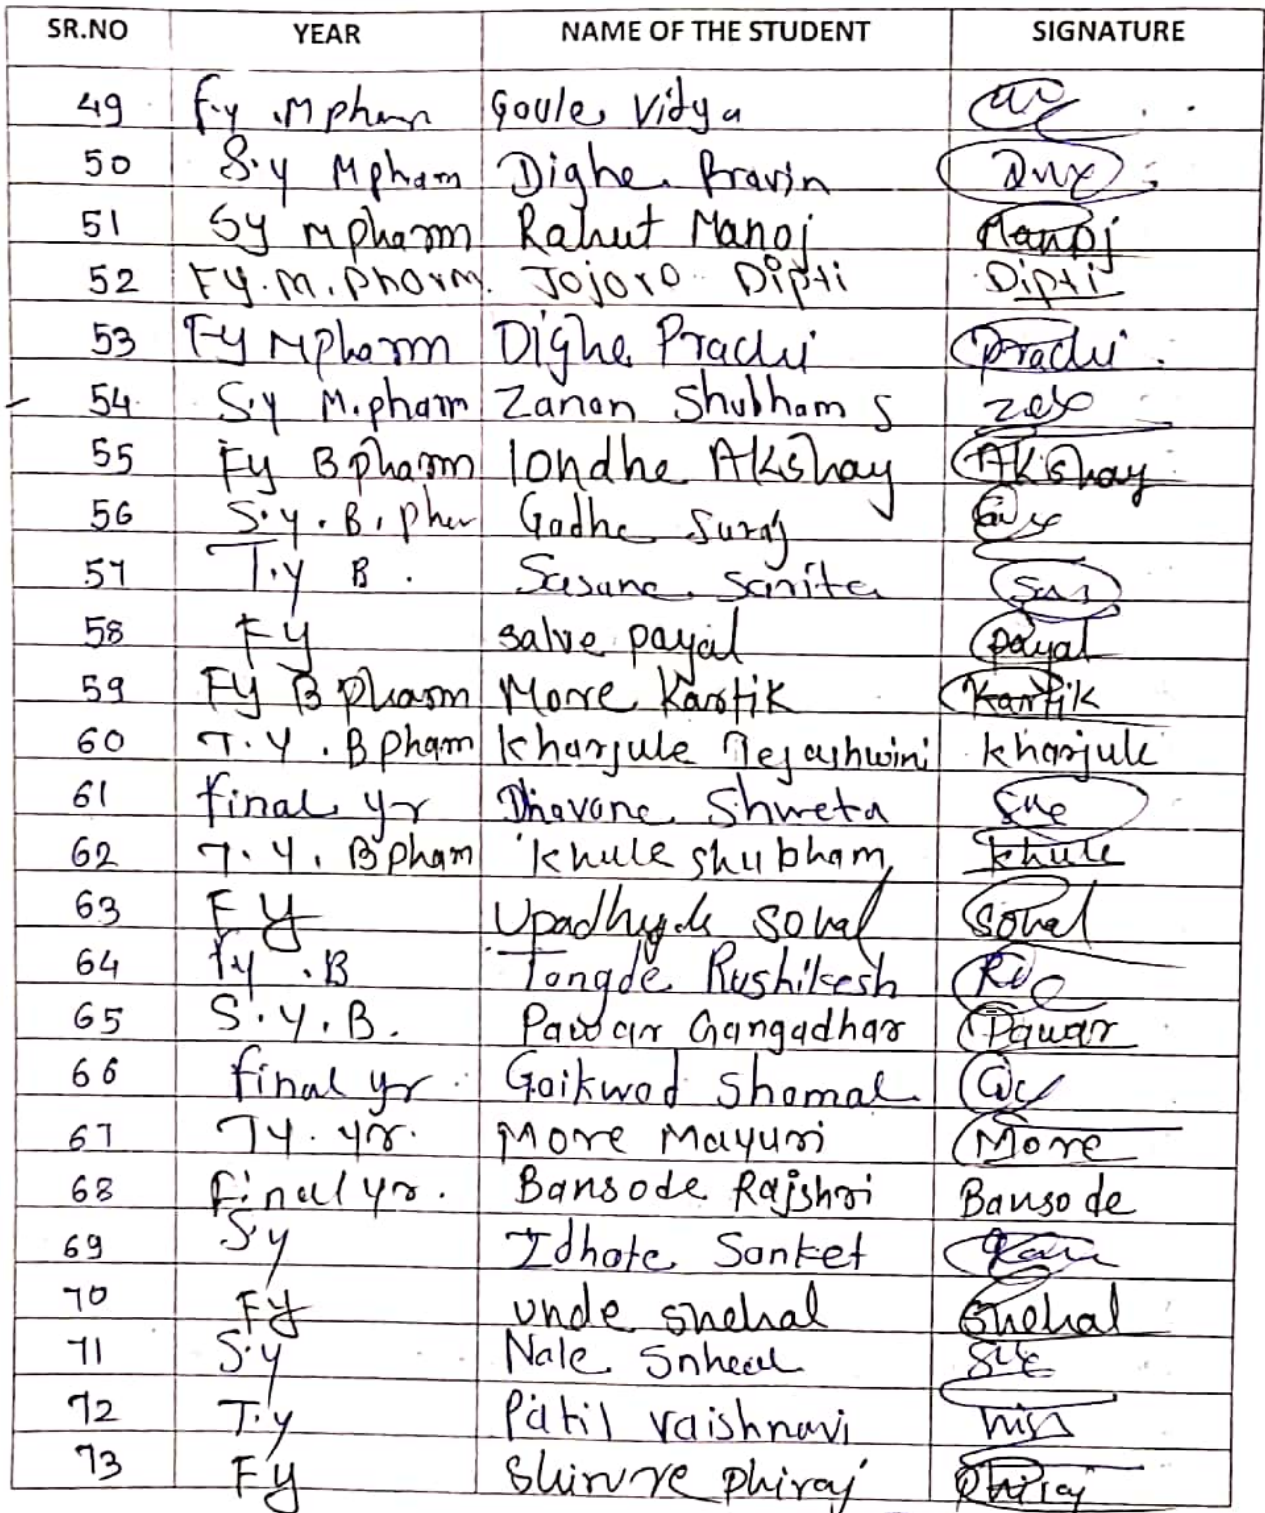 SR.NO YEAR NAME OF THE STUDENT SIGNATURE
49 F.y .M pham Goule Vidya
50 S.y Mpham Dighe Pravin
51 Sy mpharm Rahut Manoj Manoj
52 Fy.m.pharm. Jojoro Dipti Dipti
53 Fy Mpharm Dighe Prachi Prachi
54 S.y M.pharm Zanan Shubham S
55 Fy Bpharm londhe Akshay Akshay
56 S.y.B. Gadhe Suraj
57 T.y B. Sasane Sarita Sas
58 Fy salve payal payal
59 Fy B pharm More Kartik Kartik
60 T.Y.Bpham Kharjule Tejashwini Kharjule
61 final yr Dhavane Shweta
62 T.Y. Bpham Khule shubham Khule
63 FY Upadhyde Sonal Sonal
64 Ty .B Tongde Rushikesh
65 S.Y.B. Pawar Gangadhar Pawar
66 final yr Gaikwad Shamal
67 Ty. yr. More Mayuri More
68 Final yr. Bansode Rajshri Bansode
69 Sy Idhate Sanket
70 Fy unde snehal Snehal
71 S.y Nale Snheal
72 T.y Patil Vaishnavi
73 Fy Shirure Dhiraj Dhiraj